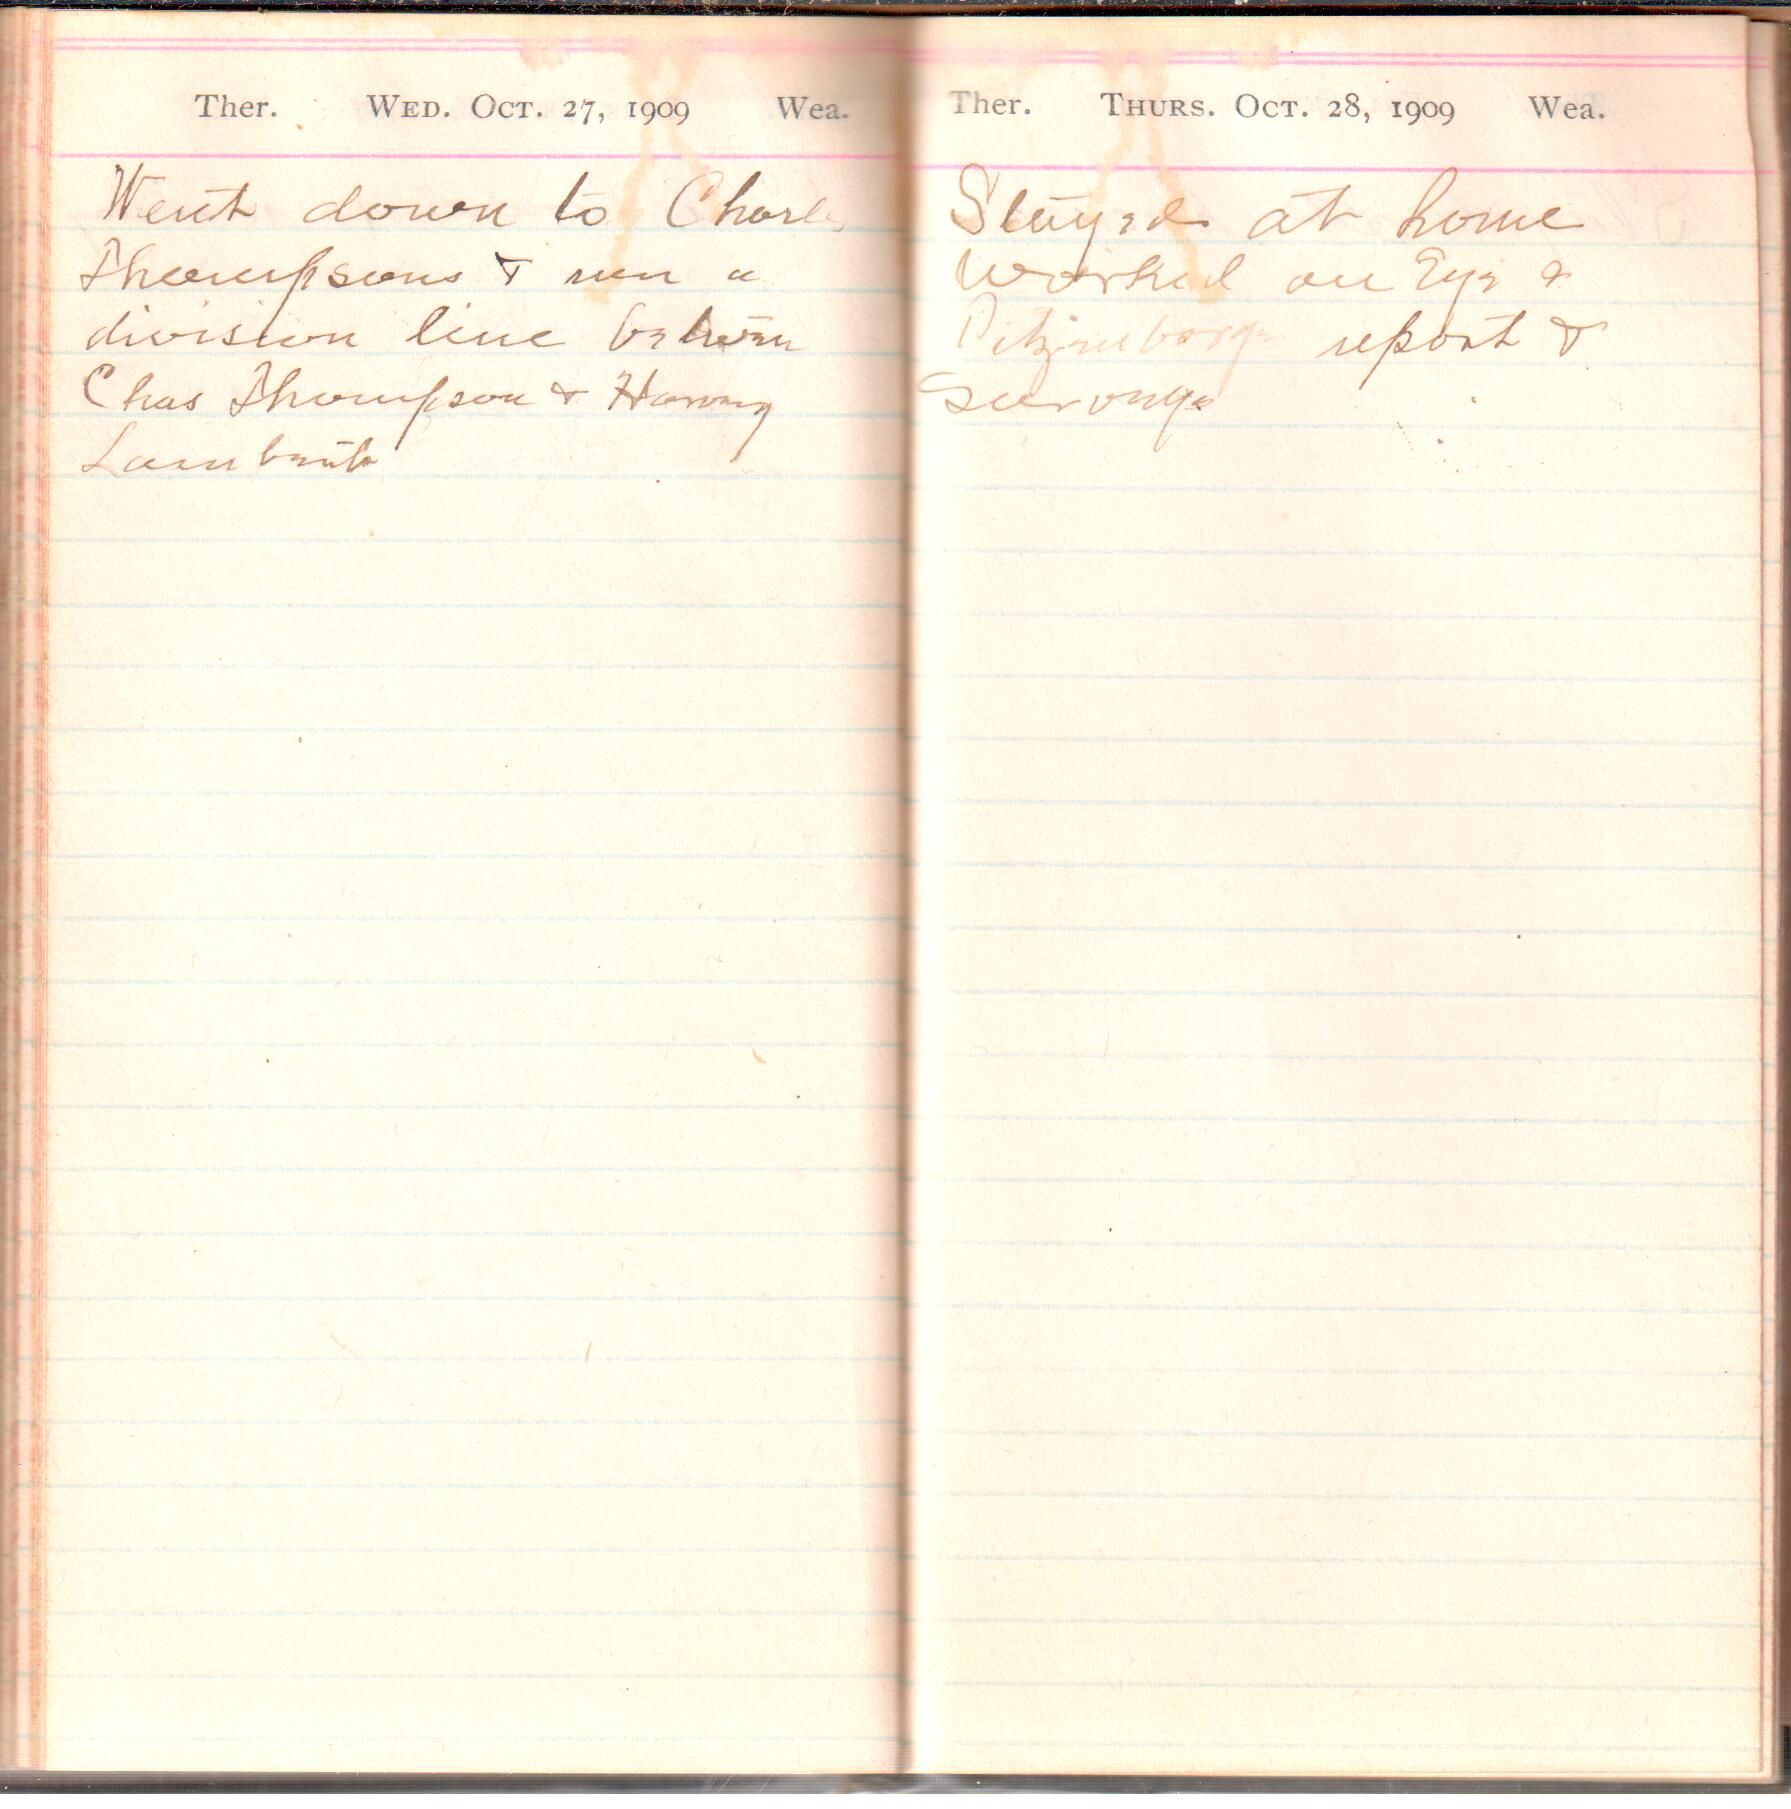 Ther. Wed. Oct. 27, 1909 Wea.
Went down to Charles
Thompsons & run a
division line between
Chas Thompson & Harvey
Lambert
Ther. Thurs. Oct. 28, 1909 Wea.
Stayed at home
Worked on Eye &
Pitzenbarger report &
Surveys